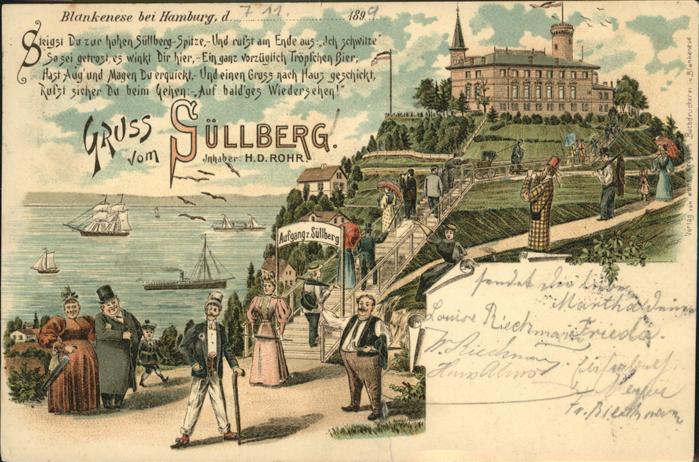 Blankenese bei Hamburg, d 7 11 1899
Steigst Du zur hohen Süllberg-Spitze,- Und rufst am Ende aus-„Ich schwitze“
So sei getrost, es winkt Dir hier,- Ein ganz vorzüglich Tröpfchen Bier;
Hast Aug' und Magen Du erquickt,- Und einen Gruss nach Haus geschickt,
Rufst sicher Du beim Gehen:-„Auf bald'ges Wiedersehen!“
GRUSS
vom SÜLLBERG.
Inhaber: H.D. ROHR.
Aufgang z. Süllberg
Verlag von
sendet Dir
Martha
Louise Riechmann Frieda.
W. Riechmann
Fr. Riechmann